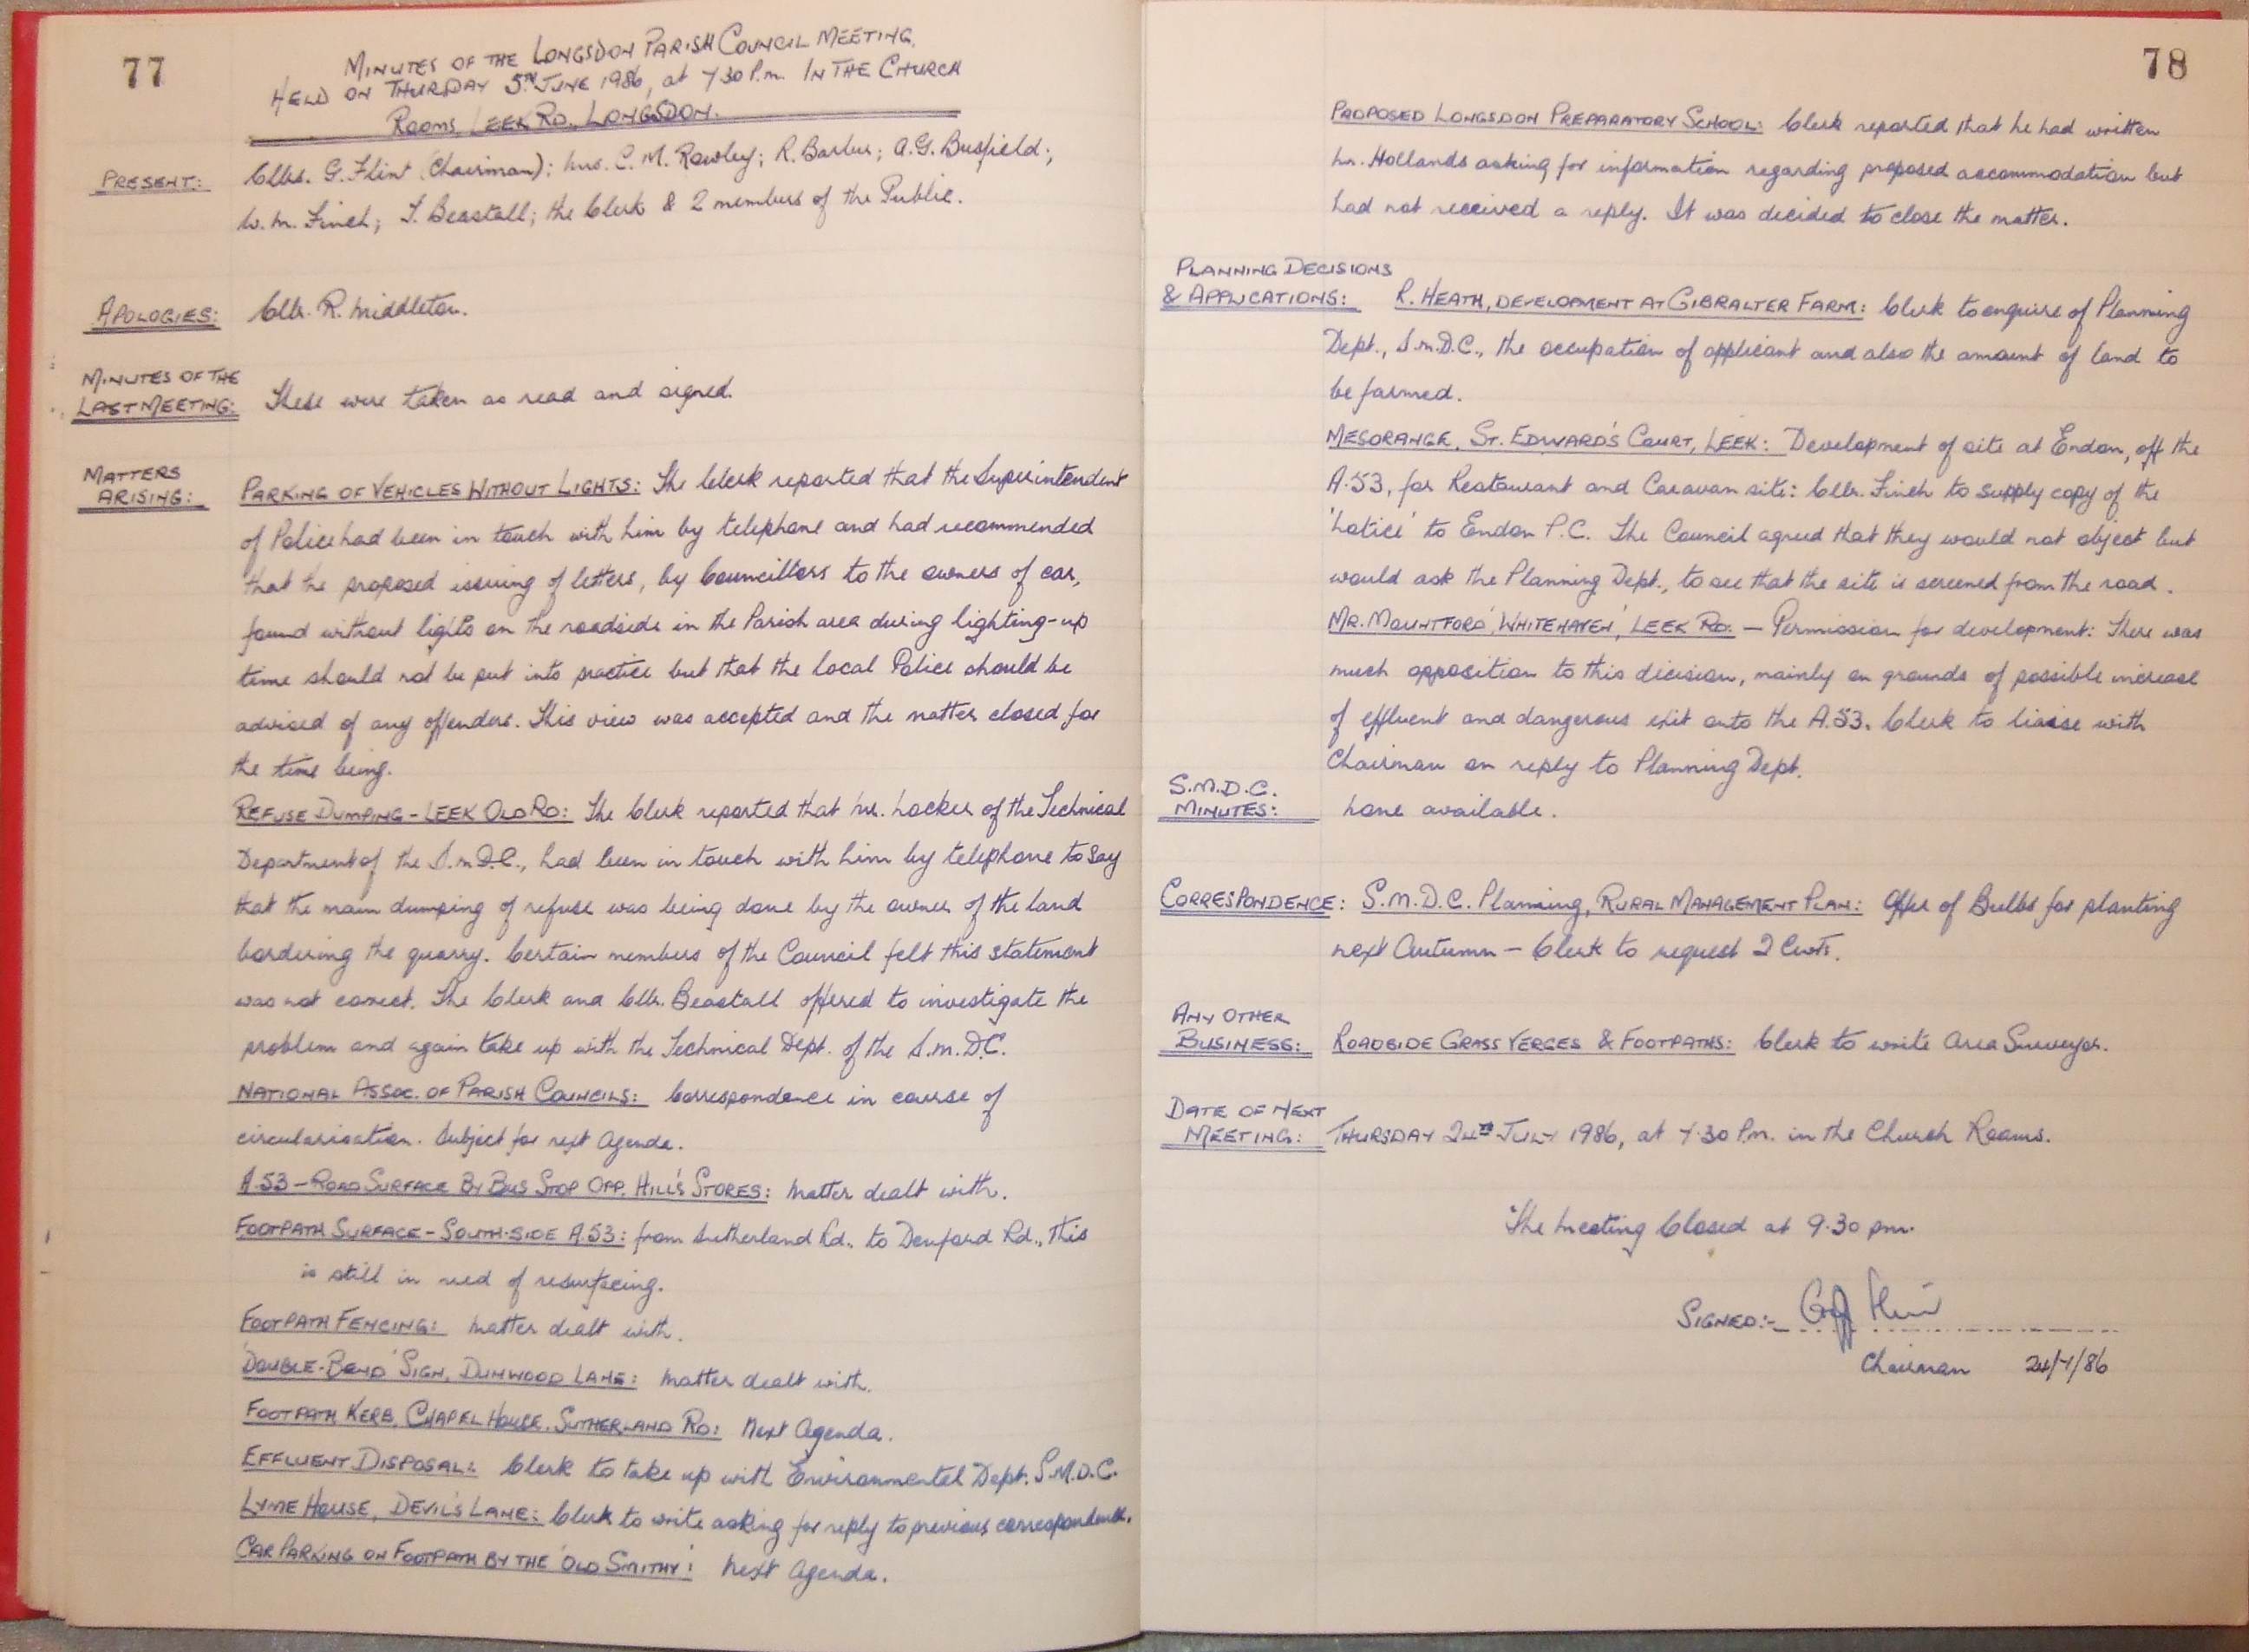 77
MINUTES OF THE LONGSDON PARISH COUNCIL MEETING,
HELD ON THURSDAY 5TH JUNE 1986, at 7 30 P.m. IN THE CHURCH
ROOMS, LEEK RD., LONGSDON.
PRESENT: Cllrs. G. Flint (Chairman); Mrs. C. M. Rowley; R. Barber; A.G. Busfield;
W. M. Finch; T. Beastall; the Clerk & 2 members of the Public.
APOLOGIES: Cllr. R. Middleton.
MINUTES OF THE
LAST MEETING: These were taken as read and signed.
MATTERS
ARISING: PARKING OF VEHICLES WITHOUT LIGHTS: The Clerk reported that the Superintendent
of Police had been in touch with him by telephone and had recommended
that the proposed issuing of letters, by Councillors to the owners of car,
found without lights on the roadside in the Parish area during lighting-up
time should not be put into practice but that the local Police should be
advised of any offenders. This view was accepted and the matter closed for
the time being.
REFUSE DUMPING - LEEK OLD RD: The Clerk reported that Mr. Locker of the Technical
Department of the S.M.D.C., had been in touch with him by telephone to say
that the main dumping of refuse was being done by the owner of the land
bordering the quarry. Certain members of the Council felt this statement
was not correct. The Clerk and Cllr. Beastall offered to investigate the
problem and again take up with the Technical Dept. of the S.M.D.C.
NATIONAL ASSOC. OF PARISH COUNCILS: Correspondence in course of
circularisation. Subject for next Agenda.
A.53 - ROAD SURFACE BY BUS STOP OPP. HILL'S STORES: Matter dealt with.
FOOTPATH SURFACE - SOUTH-SIDE A.53: from Sutherland Rd., to Denford Rd., this
is still in need of resurfacing.
FOOTPATH FENCING: Matter dealt with.
'DOUBLE-BEND' SIGN, DUNWOOD LANE: Matter dealt with.
FOOTPATH KERB, CHAPEL HOUSE, SUTHERLAND RD: Next Agenda.
EFFLUENT DISPOSAL: Clerk to take up with Environmental Dept. S.M.D.C.
LYME HOUSE, DEVIL'S LANE: Clerk to write asking for reply to previous correspondence.
CAR PARKING ON FOOTPATH BY THE 'OLD SMITHY': Next Agenda.
78
PROPOSED LONGSDON PREPARATORY SCHOOL: Clerk reported that he had written
Mr. Hollands asking for information regarding proposed accommodation but
had not received a reply. It was decided to close the matter.
PLANNING DECISIONS
& APPLICATIONS: R. HEATH, DEVELOPMENT AT GIBRALTER FARM: Clerk to enquire of Planning
Dept., S.M.D.C., the occupation of applicant and also the amount of land to
be farmed.
MESORANGE, ST. EDWARD'S COURT, LEEK: Development of site at Endon, off the
A.53, for Restaurant and Caravan site: Cllr. Finch to supply copy of the
'Notice' to Endon P.C. The Council agreed that they would not object but
would ask the Planning Dept., to see that the site is screened from the road.
MR. MOUNTFORD, 'WHITEHAVEN', LEEK RD. - Permission for development: There was
much opposition to this decision, mainly on grounds of possible increase
of effluent and dangerous exit onto the A.53. Clerk to liaise with
Chairman on reply to Planning Dept.
S.M.D.C.
MINUTES: None available.
CORRESPONDENCE: S.M.D.C. Planning, RURAL MANAGEMENT PLAN: Offer of Bulbs for planting
next Autumn - Clerk to request 2 Cwts.
ANY OTHER
BUSINESS: ROADSIDE GRASS VERGES & FOOTPATHS: Clerk to write Area Surveyor.
DATE OF NEXT
MEETING: THURSDAY 24TH JULY 1986, at 7.30 P.m. in the Church Rooms.
The Meeting Closed at 9.30 pm.
SIGNED:- Geoff Flint
Chairman 24/7/86